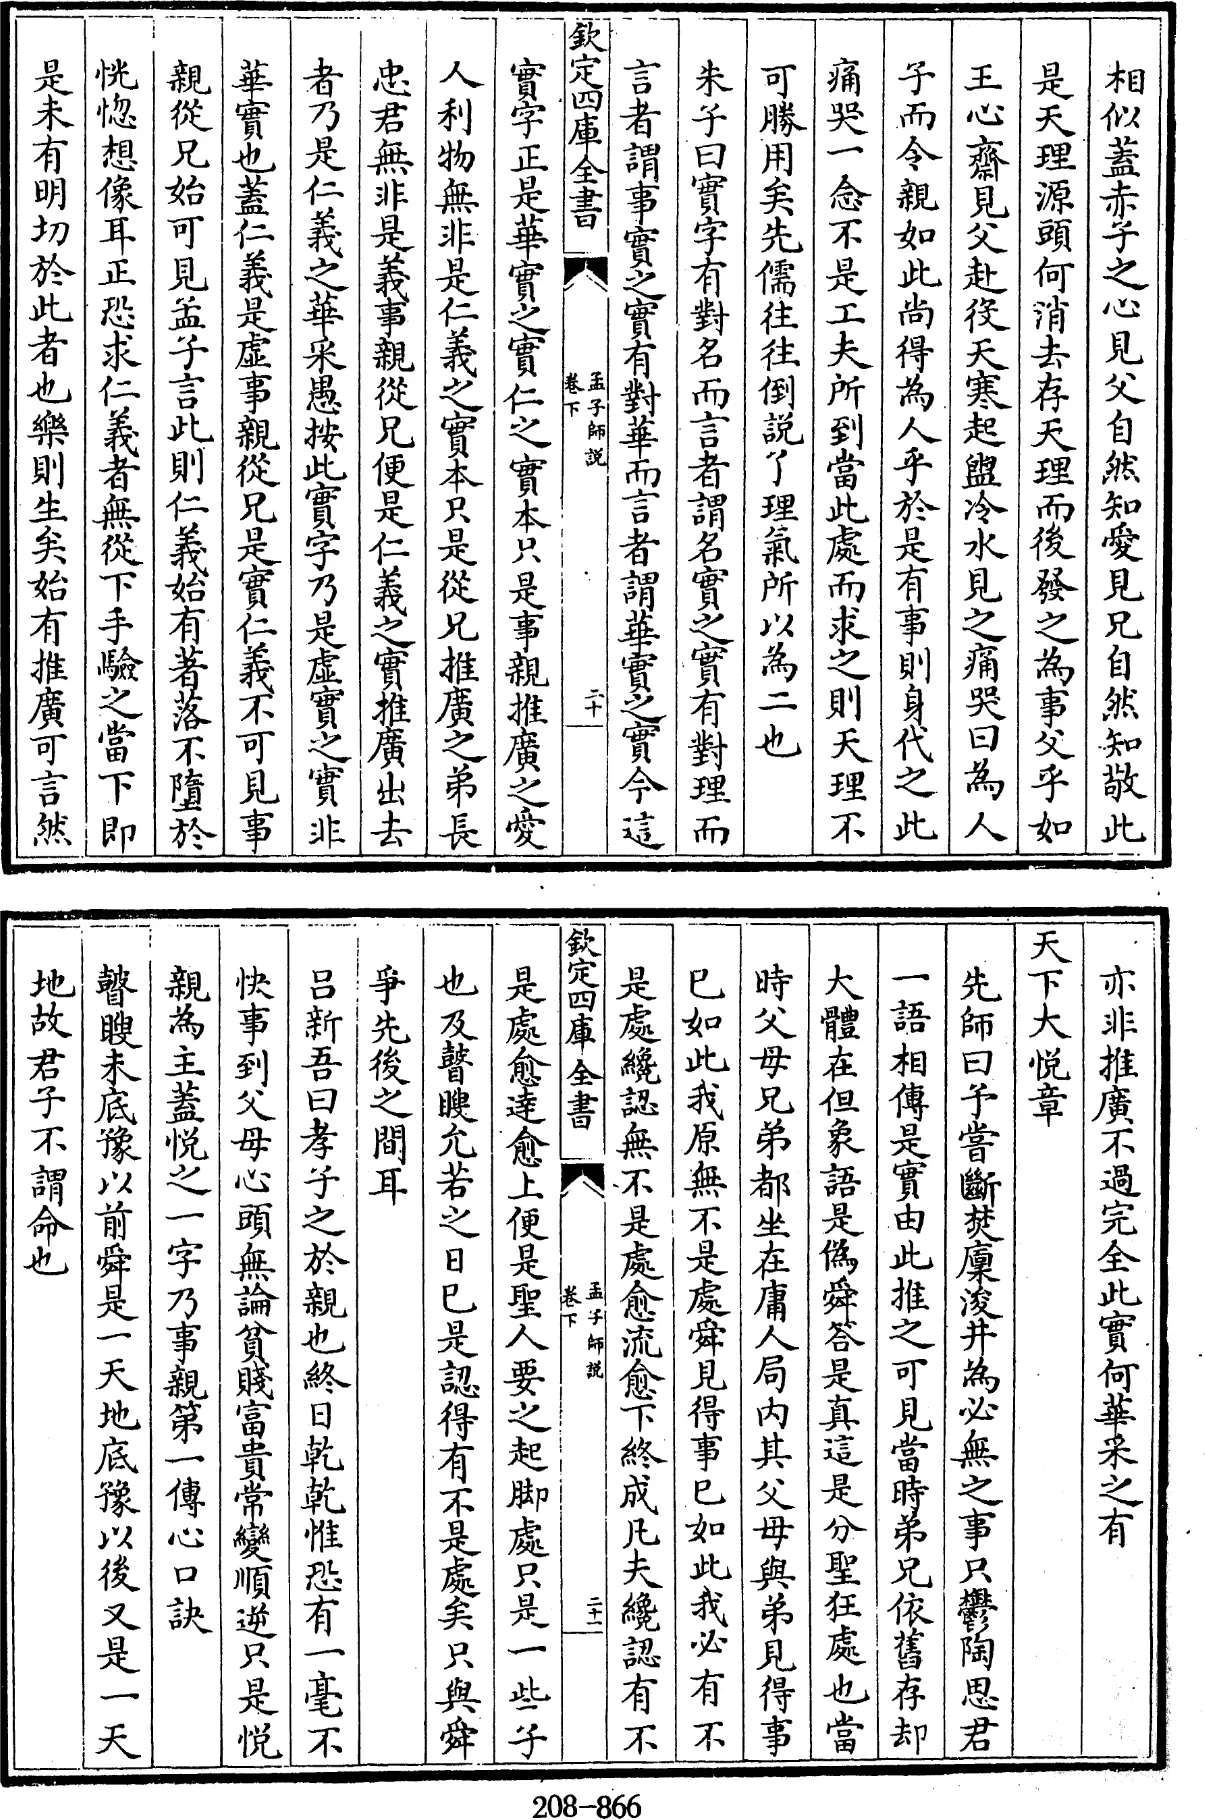 相似蓋赤子之心見父自然知愛見兄自然知敬此
是天理源頭何消去存天理而後發之為事父乎如
王心齋見父赴役天寒起盥冷水見之痛哭曰為人
子而令親如此尚得為人乎於是有事則身代之此
痛哭一念不是工夫所到當此處而求之則天理不
可勝用矣先儒往往倒説了理氣所以為二也
朱子曰實字有對名而言者謂名實之實有對理而
言者謂事實之實有對華而言者謂華實之實今這
欽定四庫全書
孟子師説
卷下
二十
實字正是華實之實仁之實本只是事親推廣之愛
人利物無非是仁義之實本只是從兄推廣之弟長
忠君無非是義事親從兄便是仁義之實推廣出去
者乃是仁義之華采愚按此實字乃是虛實之實非
華實也蓋仁義是虛事親從兄是實仁義不可見事
親從兄始可見孟子言此則仁義始有著落不墮於
恍惚想像耳正恐求仁義者無從下手驗之當下即
是未有明切於此者也樂則生矣始有推廣可言然
亦非推廣不過完全此實何華采之有
天下大悅章
先師曰予嘗斷焚廩浚井為必無之事只鬱陶思君
一語相傳是實由此推之可見當時弟兄依舊存却
大體在但象語是僞舜答是真這是分聖狂處也當
時父母兄弟都坐在庸人局内其父母與弟見得事
已如此我原無不是處舜見得事已如此我必有不
是處纔認無不是處愈流愈下終成凡夫纔認有不
欽定四庫全書
孟子師説
卷下
二十一
是處愈達愈上便是聖人要之起脚處只是一些子
也及瞽瞍允若之日已是認得有不是處矣只與舜
爭先後之間耳
吕新吾曰孝子之於親也終日乾乾惟恐有一毫不
快事到父母心頭無論貧賤富貴常變順逆只是悅
親為主蓋悅之一字乃事親第一傳心口訣
瞽瞍未底豫以前舜是一天地底豫以後又是一天
地故君子不謂命也
208-866